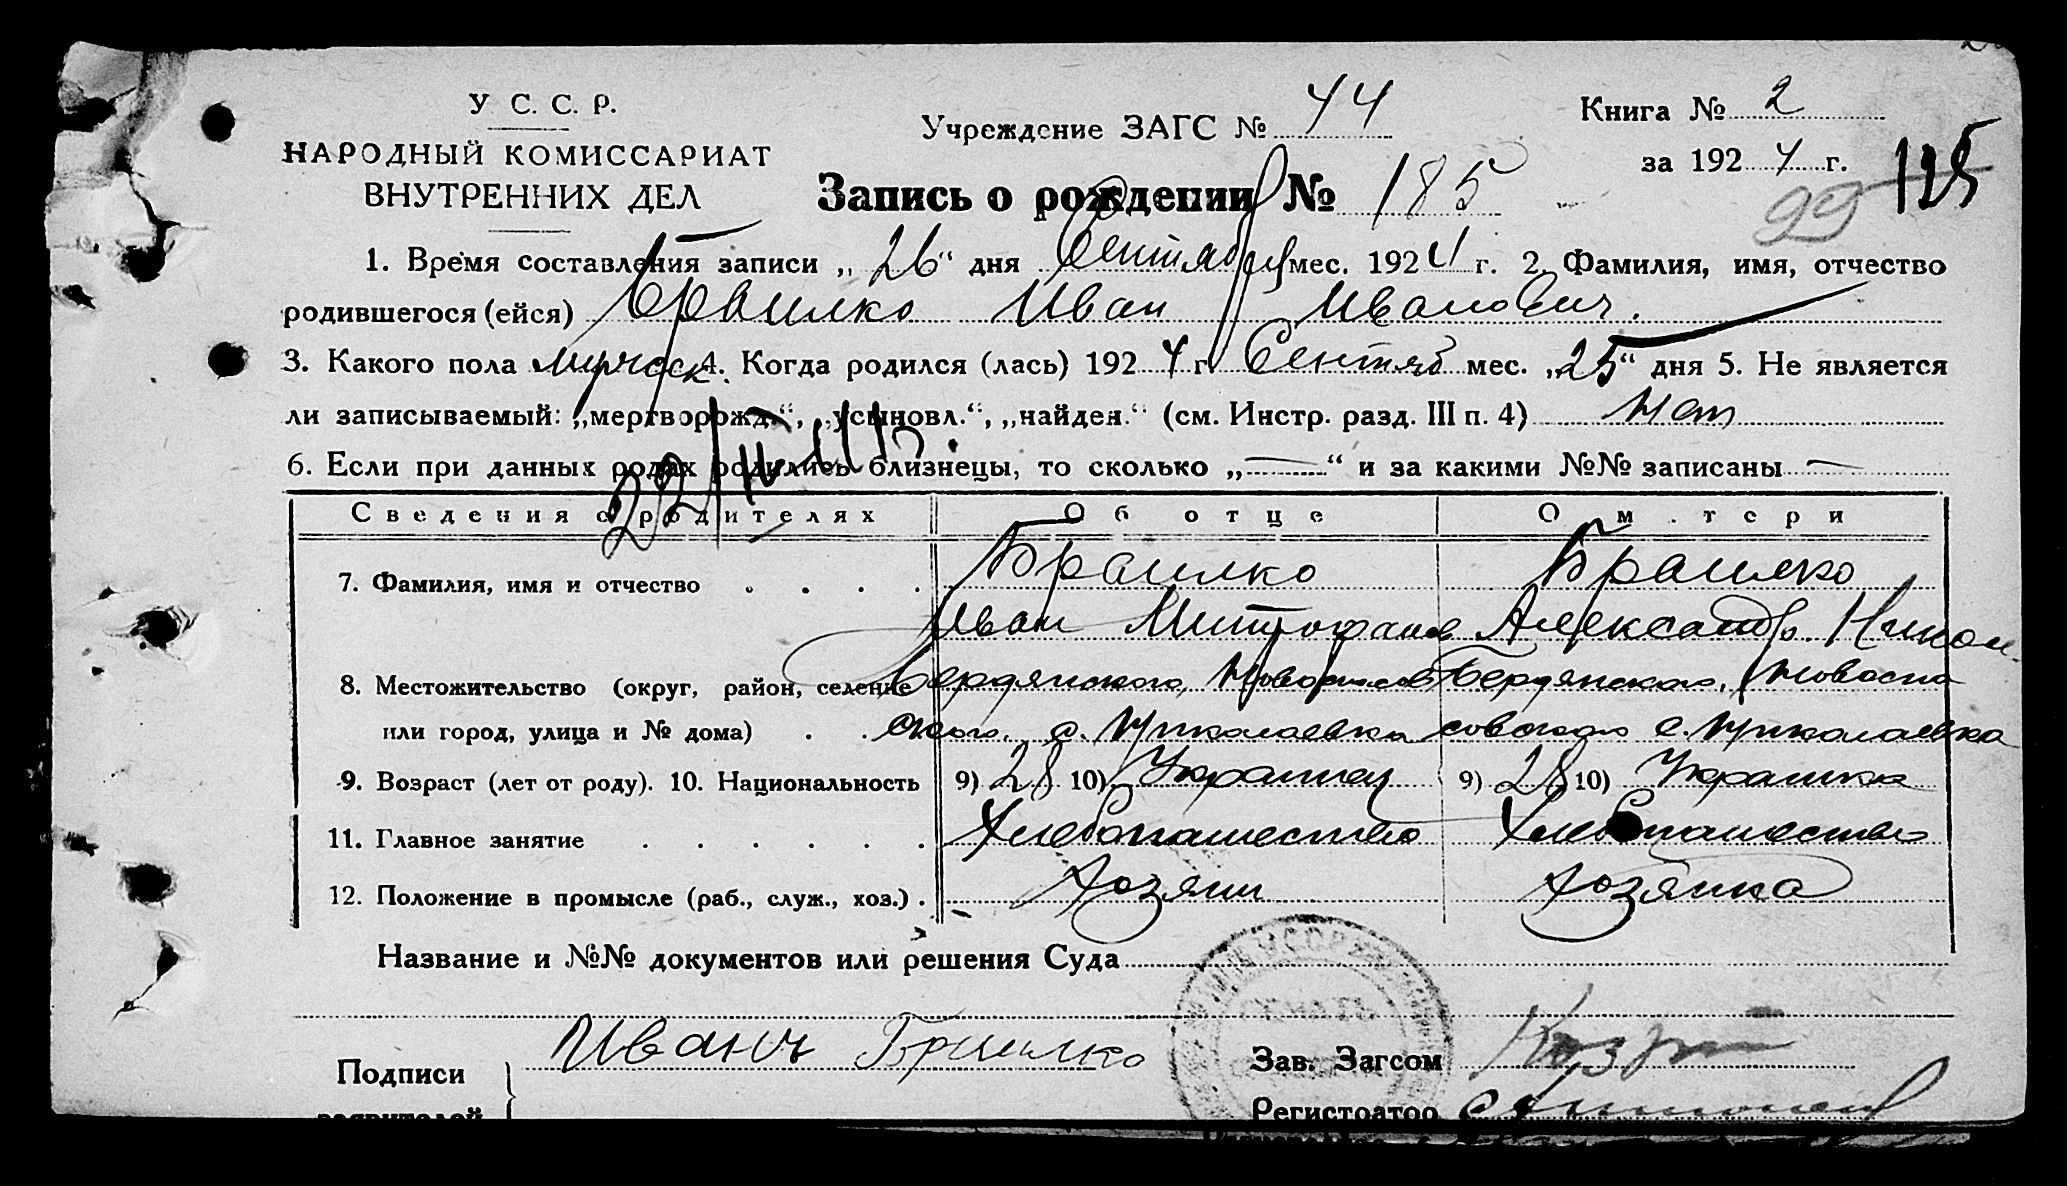 У С. С. Р.
НАРОДНЫЙ КОМИССАРИАТ
ВНУТРЕННИХ ДЕЛ
Учреждение ЗАГС № 44
Книга № 2
за 1924 г.
125
99
Запись о рождении № 185
1. Время составления записи „26“ дня Сентября мес. 1924 г. 2. Фамилия, имя, отчество
родившегося (ейся) Браилко Иван Иванович.
3. Какого пола мужск. 4. Когда родился (лась) 1924 г. Сентяб мес. „25“ дня 5. Не является
ли записываемый: „мертворожд.“, „усыновл.“, „найден.“ (см. Инстр. разд. III п. 4) нет
6. Если при данных родах родились близнецы, то сколько „—“ и за какими №№ записаны —
Сведения о родителях Об отце О матери
7. Фамилия, имя и отчество . . . . Браилко Браилко
Иван Митрофанов Александр Никол.
8. Местожительство (округ, район, селение Бердянского, Новоспасов Бердянского, Новоспа
или город, улица и № дома) . . ского. с. Николаевка совского с. Николаевка
9. Возраст (лет от роду). 10. Национальность 9) 28 10) Украинец 9) 28 10) Украинка
11. Главное занятие . . . . . . Хлебопашество Хлебопашество
12. Положение в промысле (раб., служ., хоз.) . Хозяин Хозяйка
Название и №№ документов или решения Суда
Подписи Иванъ Браилко Зав. Загсом
заявителей Регистратор